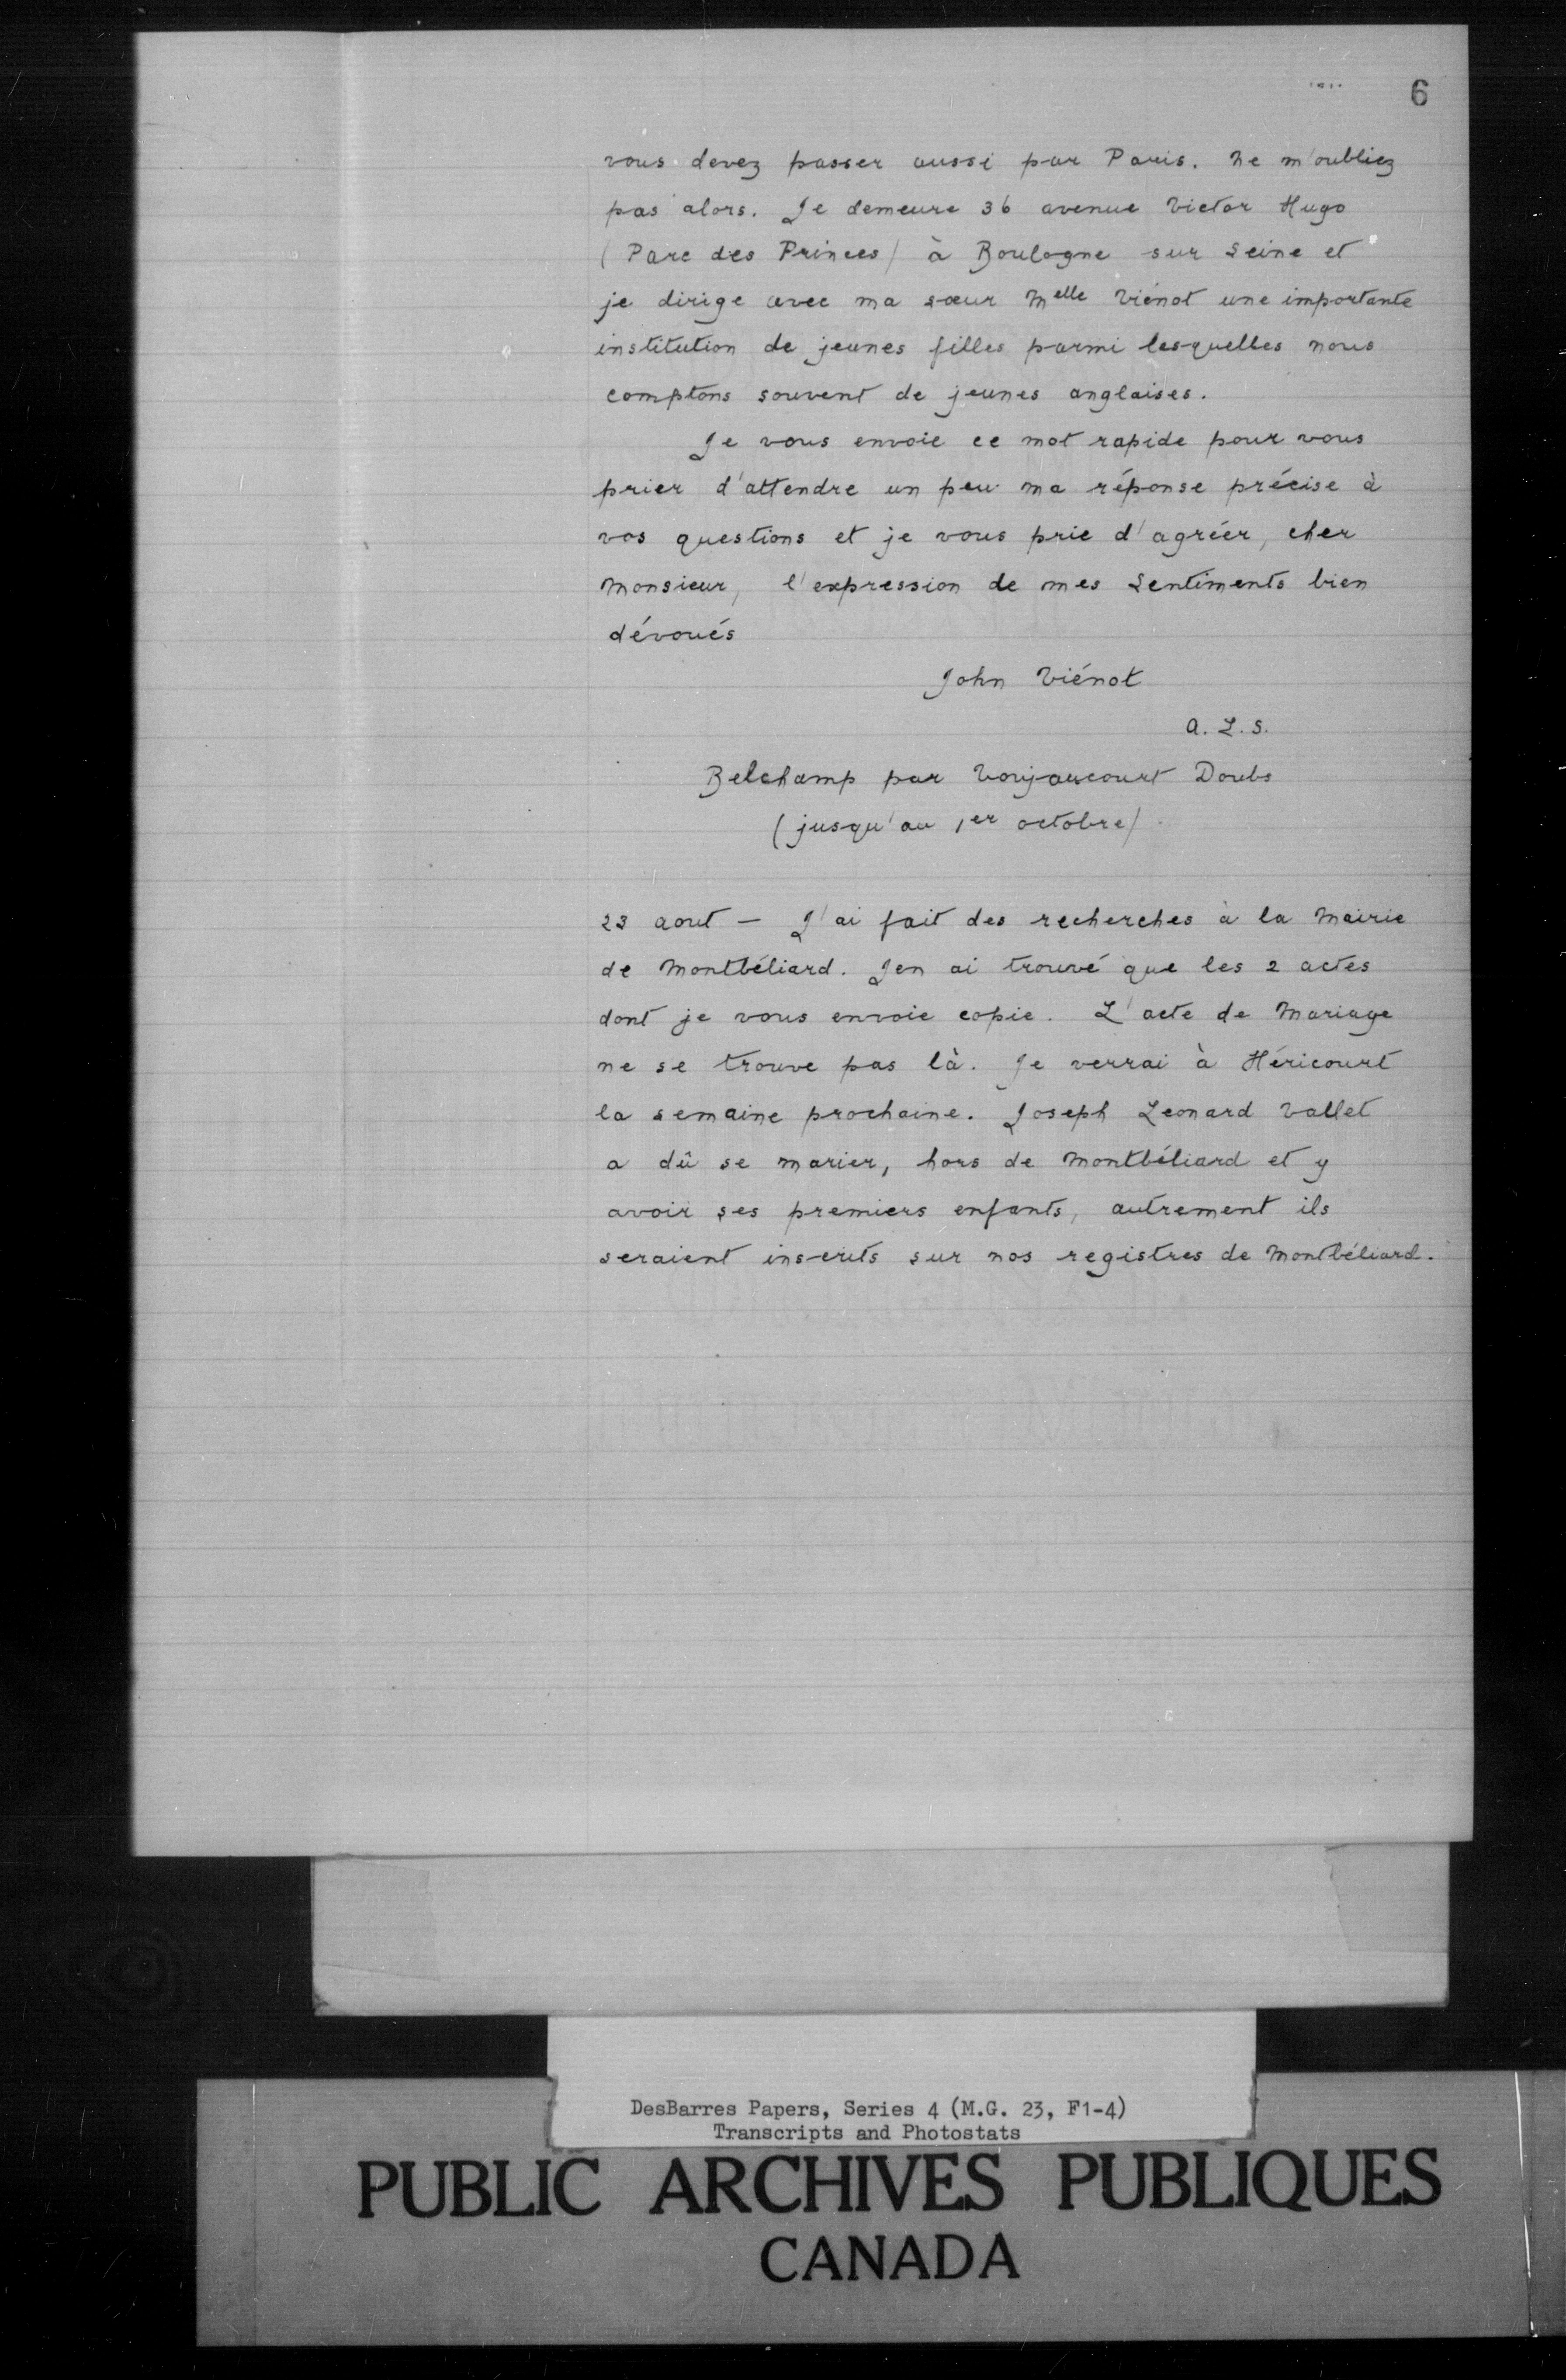 6
vous devez passer aussi par Paris. Ne m'oubliez
pas alors. Je demeure 36 avenue Victor Hugo
(Parc des Princes) à Boulogne sur Seine et
je dirige avec ma sœur Melle Viénot une importante
institution de jeunes filles parmi lesquelles nous
comptons souvent de jeunes anglaises.
Je vous envoie ce mot rapide pour vous
prier d'attendre un peu ma réponse précise à
vos questions et je vous prie d'agréer, cher
Monsieur, l'expression de mes Sentiments bien
dévoués
John Viénot
A. L. S.
Belchamp par Voujaucourt Doubs
(jusqu'au 1er octobre)
23 aout — J'ai fait des recherches à la Mairie
de Montbéliard. Jen ai trouvé que les 2 actes
dont je vous envoie copie. L'acte de Mariage
ne se trouve pas là. Je verrai à Héricourt
la semaine prochaine. Joseph Leonard Vallet
a dû se marier, hors de Montbéliard et y
avoir ses premiers enfants, autrement ils
seraient inscrits sur nos registres de Montbéliard.
DesBarres Papers, Series 4 (M.G. 23, F1-4)
Transcripts and Photostats
PUBLIC ARCHIVES PUBLIQUES
CANADA